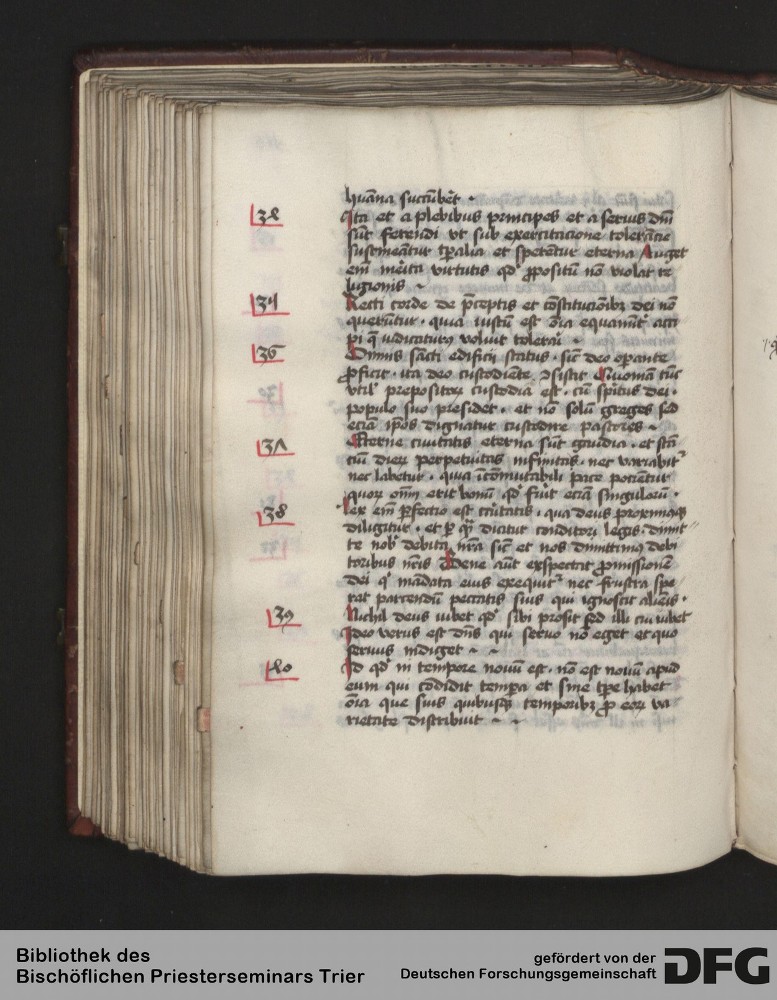 huana sucubet .
34
Ita et a plebibus principes et a seruis dni
sut ferendi vt sub exercitacione tolerancie
sustineantur tpalia et sperentur eterna Auget
em merita virtutis qd ppositu no violat re
ligionis ~
35
Recti corde de pceptis et constitucionibz dei no
querutur . quia iustu est oia equanimit acci
pi q iudicaturus voluit tolerari ~
36
Omnis sacti edificii status . sic deo operante
pficit . ita deo custodiente 9sistit Quoniam tuc
vtil prepositorum custodia est . cu spiritus dei .
populo suo presidet . et no solu greges sed
ecia ipsos dignatur custodire pastores ~
37
Eterne ciuitatis eterna sut gaudia . et scta
cui dierum perpetuitas infinitas . nec variabit
nec labetur . quia icomutabili pace pocietur
quorum omni erit bonu qd fuit ecia singulorum .
38
Lex em perfectio est caritatis . qua deus proximusq
diligitur . et p qua dicatur conditori legis . dimit
te nob debita nra sicut et nos dimittimus debi
toribus nris Bene aut exspectat pmissione
dei q mandata eius exequit nec frustra spe
rat parcendu peccatis suis qui ignoscit alienis .
39
Nichil deus iubet qd sibi prosit sed illi cui iubet
Ideo verus est dns qui seruo no eget et quo
seruus indiget ~ ~
40
Id qd in tempore nouu est . no est nouu apud
eum qui condidit tempora et sine tpe habet
oia que suis quibusq temporibz p eorum va
rietate distribuit ~ ~
Bibliothek des
Bischöflichen Priesterseminars Trier
gefördert von der
Deutschen Forschungsgemeinschaft
DFG